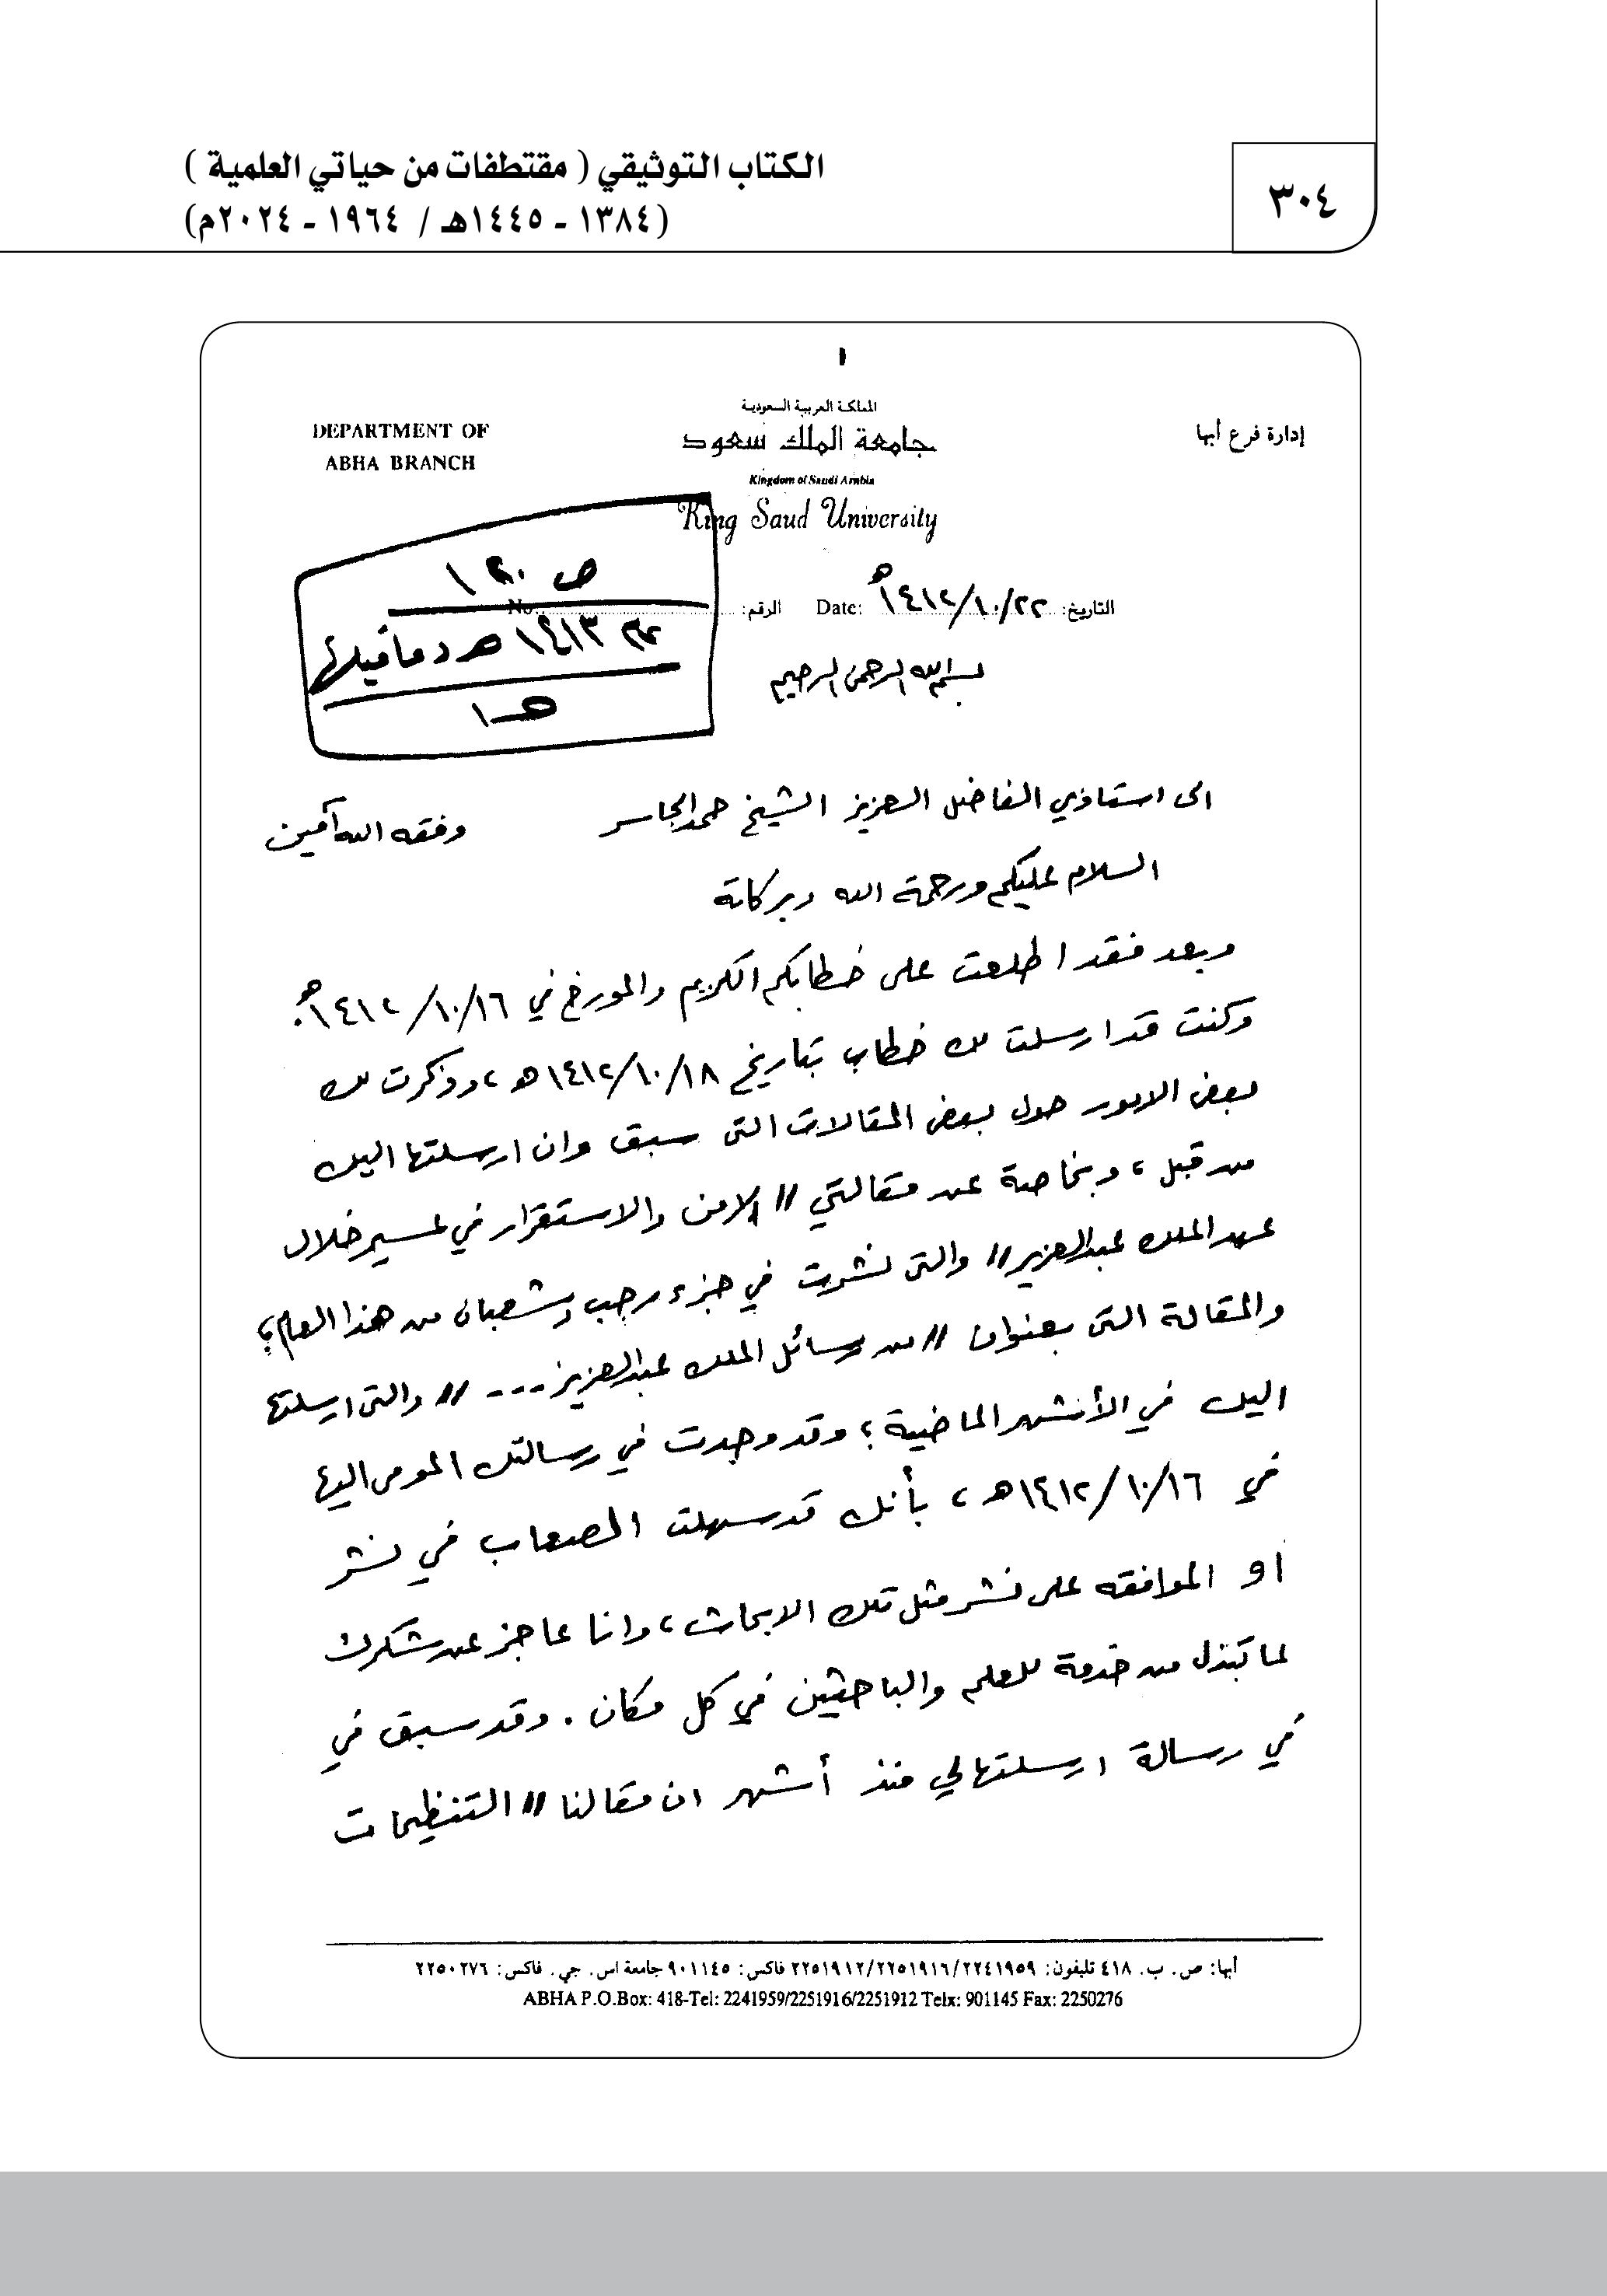 الكتاب التوثيقي ( مقتطفات من حياتي العلمية )
(١٣٨٤ - ١٤٤٥هـ / ١٩٦٤ - ٢٠٢٤م)
٣٠٤
١
المملكة العربية السعودية
إدارة فرع أبها
جامعة الملك سعود
DEPARTMENT OF
ABHA BRANCH
Kingdom of Saudi Arabia
King Saud University
التاريخ: ١٤١٢/١٠/٢٢هـ Date: الرقم: No.
ص ١٢٠
١٤١٣ هـ وما قبلها
هـ١
بسم الله الرحمن الرحيم
الى استاذي الفاضل العزيز الشيخ حمد الجاسر وفقه الله آمين
السلام عليكم ورحمة الله وبركاتة
وبعد فقد اطلعت على خطابكم الكريم والمورخ في ١٤١٢/١٠/١٦هـ.
وكنت قد ارسلت لك خطاب بتاريخ ١٤١٢/١٠/١٨هـ ، وذكرت لك
بعض الامور حول بعض المقالات التى سبق وان ارسلتها اليك
من قبل ، وبخاصة عن مقالتي // الامن والاستقرار في عسير خلال
عهد الملك عبدالعزيز // والتى نشرت في جزء رجب وشعبان من هذا العام ؛
والمقالة التى بعنوان // من رسائل الملك عبدالعزيز --- // والتى ارسلتها
اليك في الأشهر الماضية ؛ وقد وجدت في رسالتك المومى اليها
في ١٤١٢/١٠/١٦هـ ، بأنك قد سهلت الصعاب في نشر
او الموافقه على نشر مثل تلك الابحاث ، وانا عاجز عن شكرك
لما تبذل من خدمة للعلم والباحثين في كل مكان . وقد سبق في
في رسالة ارسلتها لي منذ أشهر ان مقالنا // التنظيمات
أبها: ص. ب. ٤١٨ تليفون: ٢٢٥١٩١٢/٢٢٥١٩١٦/٢٢٤١٩٥٩ فاكس: ٩٠١١٤٥ جامعة اس. جي. فاكس: ٢٢٥٠٢٧٦
ABHA P.O.Box: 418-Tel: 2241959/2251916/2251912 Telx: 901145 Fax: 2250276